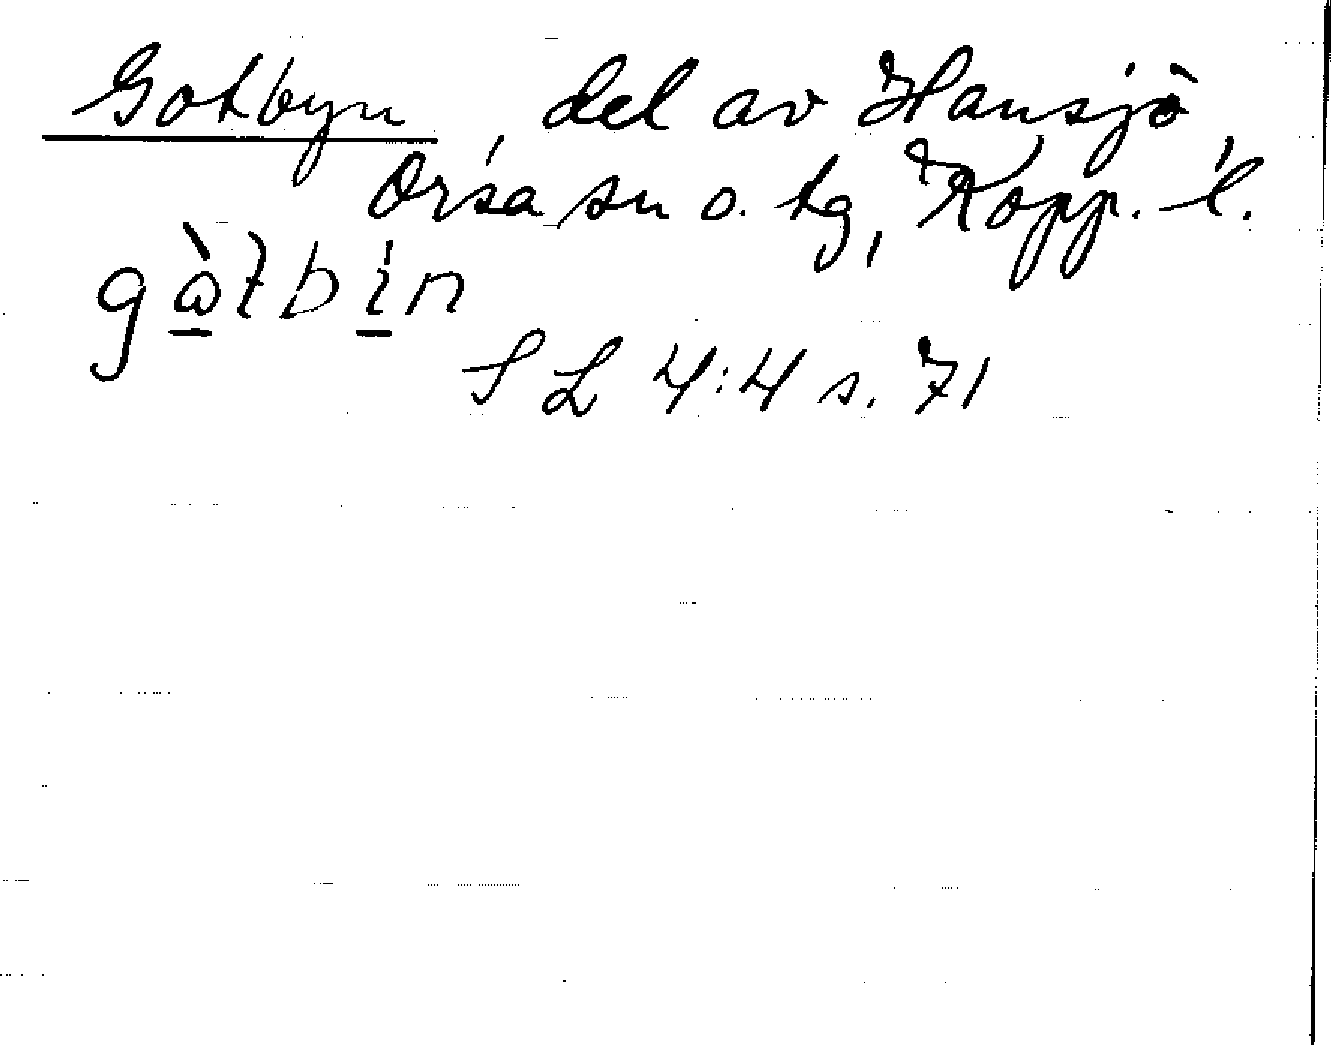 Gotbyn, del av Hansjö,
Orsa sn o. tg, Kopp. l.
gὼ̱tbi̱n
SL 4:4 s. 71